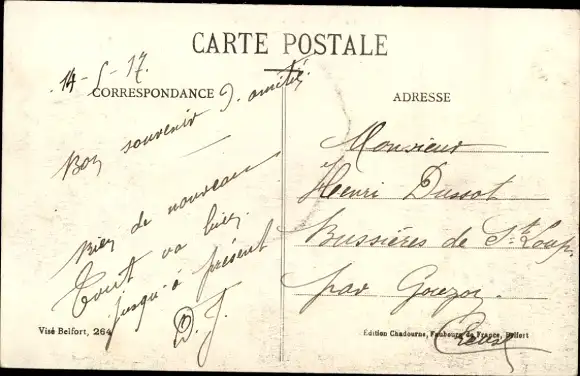 CARTE POSTALE
14-5-17.
CORRESPONDANCE
Bon souvenir d'amitié
Rien de nouveau
Tout va bien
jusqu'à présent
D. J.
ADRESSE
Monsieur
Henri Dussot
Bussières de St. Loup
par Gouzon.
Creuse
Visé Belfort, 264
Édition Chadourne, Faubourg de France, Belfort